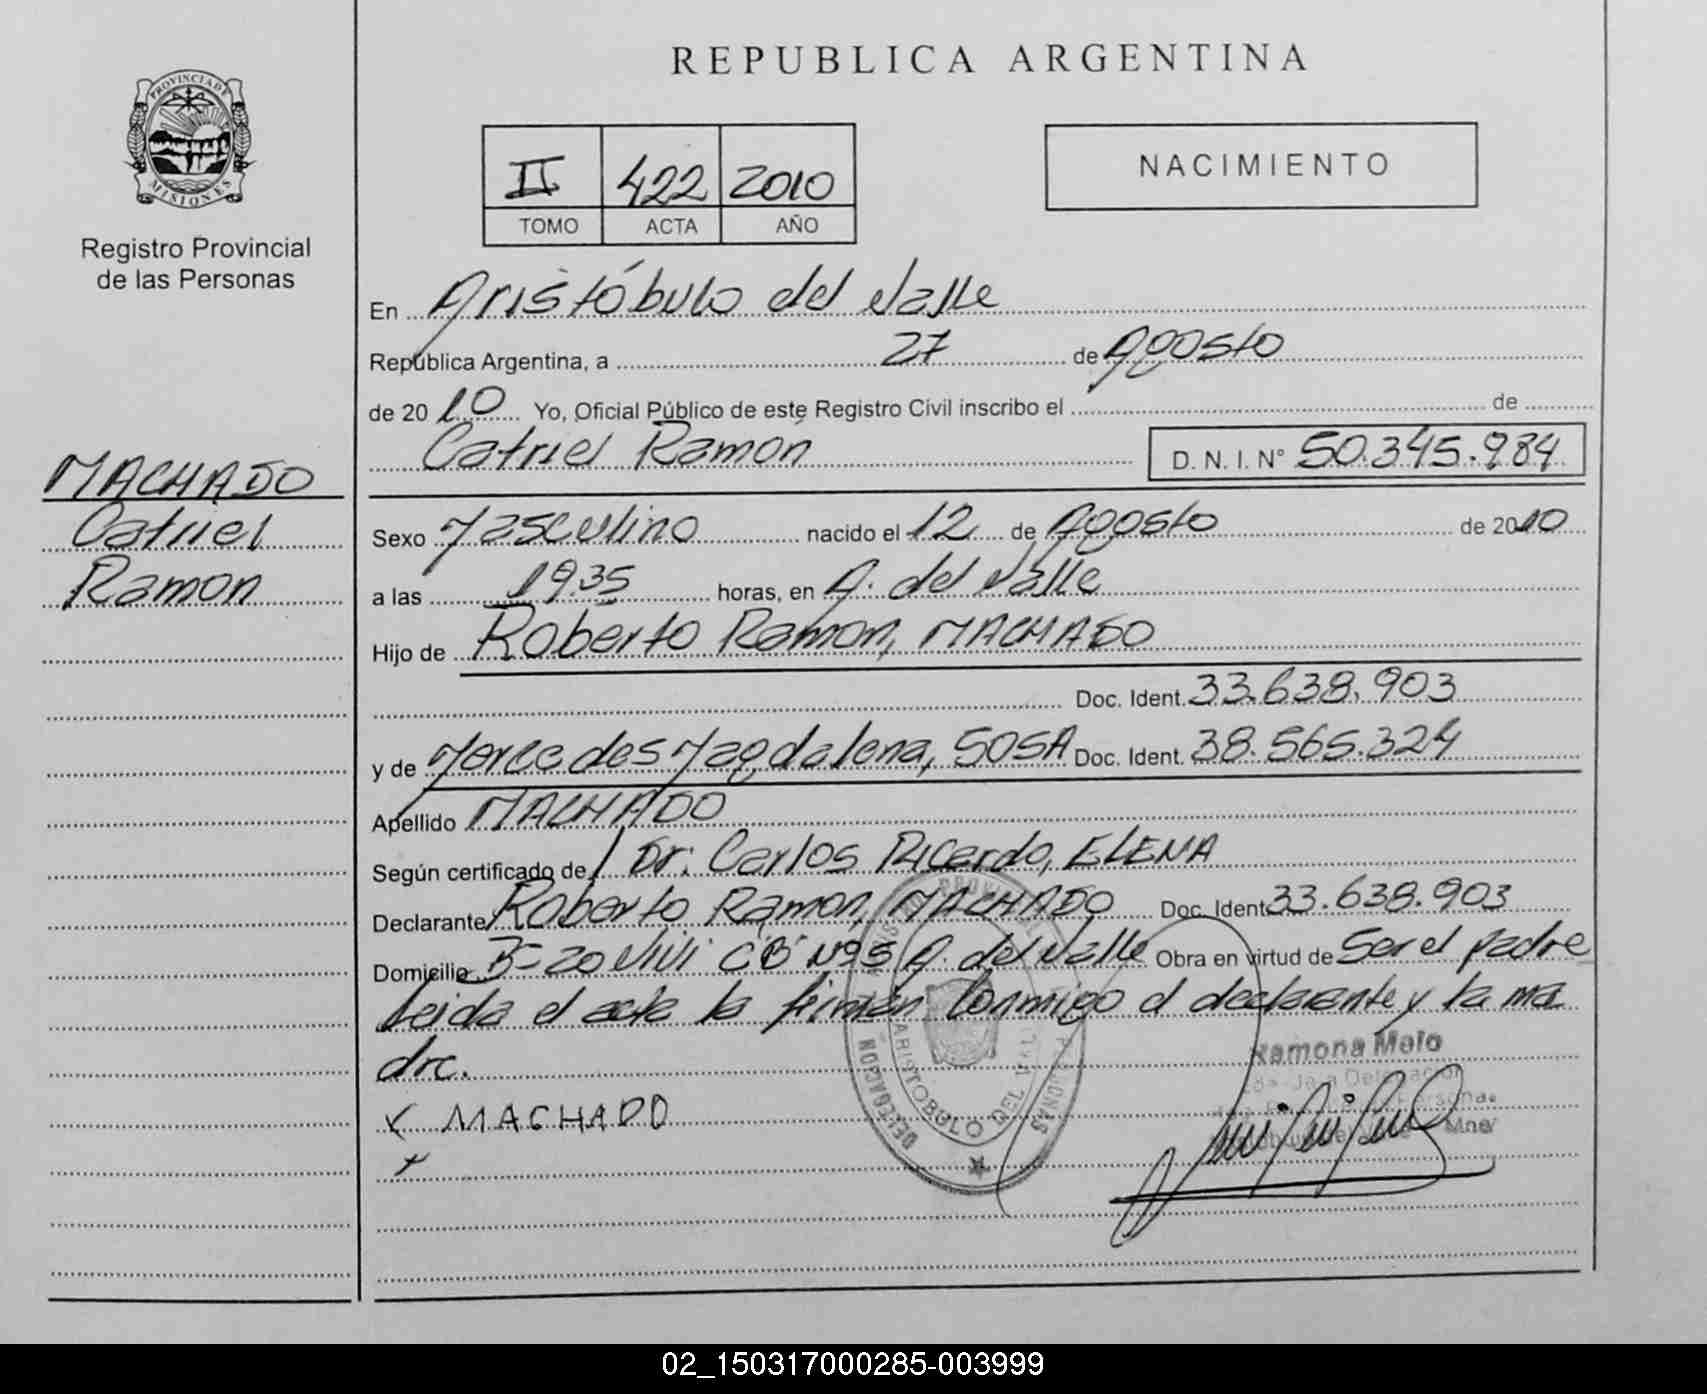 PROVINCIA DE
MISIONES
Registro Provincial
de las Personas
MACHADO
Catriel
Ramon
REPUBLICA ARGENTINA
II 422 2010
TOMO ACTA AÑO
NACIMIENTO
En Aristóbulo del Valle
República Argentina, a 27 de Agosto
de 2010 Yo, Oficial Público de este Registro Civil inscribo el de
Catriel Ramón D. N. I. N° 50.345.984
Sexo Masculino nacido el 12 de Agosto de 2010
a las 19.35 horas, en A. del Valle
Hijo de Roberto Ramon, MACHADO
Doc. Ident. 33.638.903
y de Mercedes Magdalena, SOSA Doc. Ident. 38.565.324
Apellido MACHADO
Según certificado de Dr: Carlos Ricardo, ELENA
Declarante Roberto Ramon, MACHADO Doc. Ident 33.638.903
Domicilio B-20 Vivi CB Nº5 A. del Valle Obra en virtud de Ser el padre
Leida el acta la firman conmigo el declarante y la ma
dre.
MACHADO
DELEGACIÓN
ARISTOBULO DEL VALLE
Ramona Melo
02_150317000285-003999